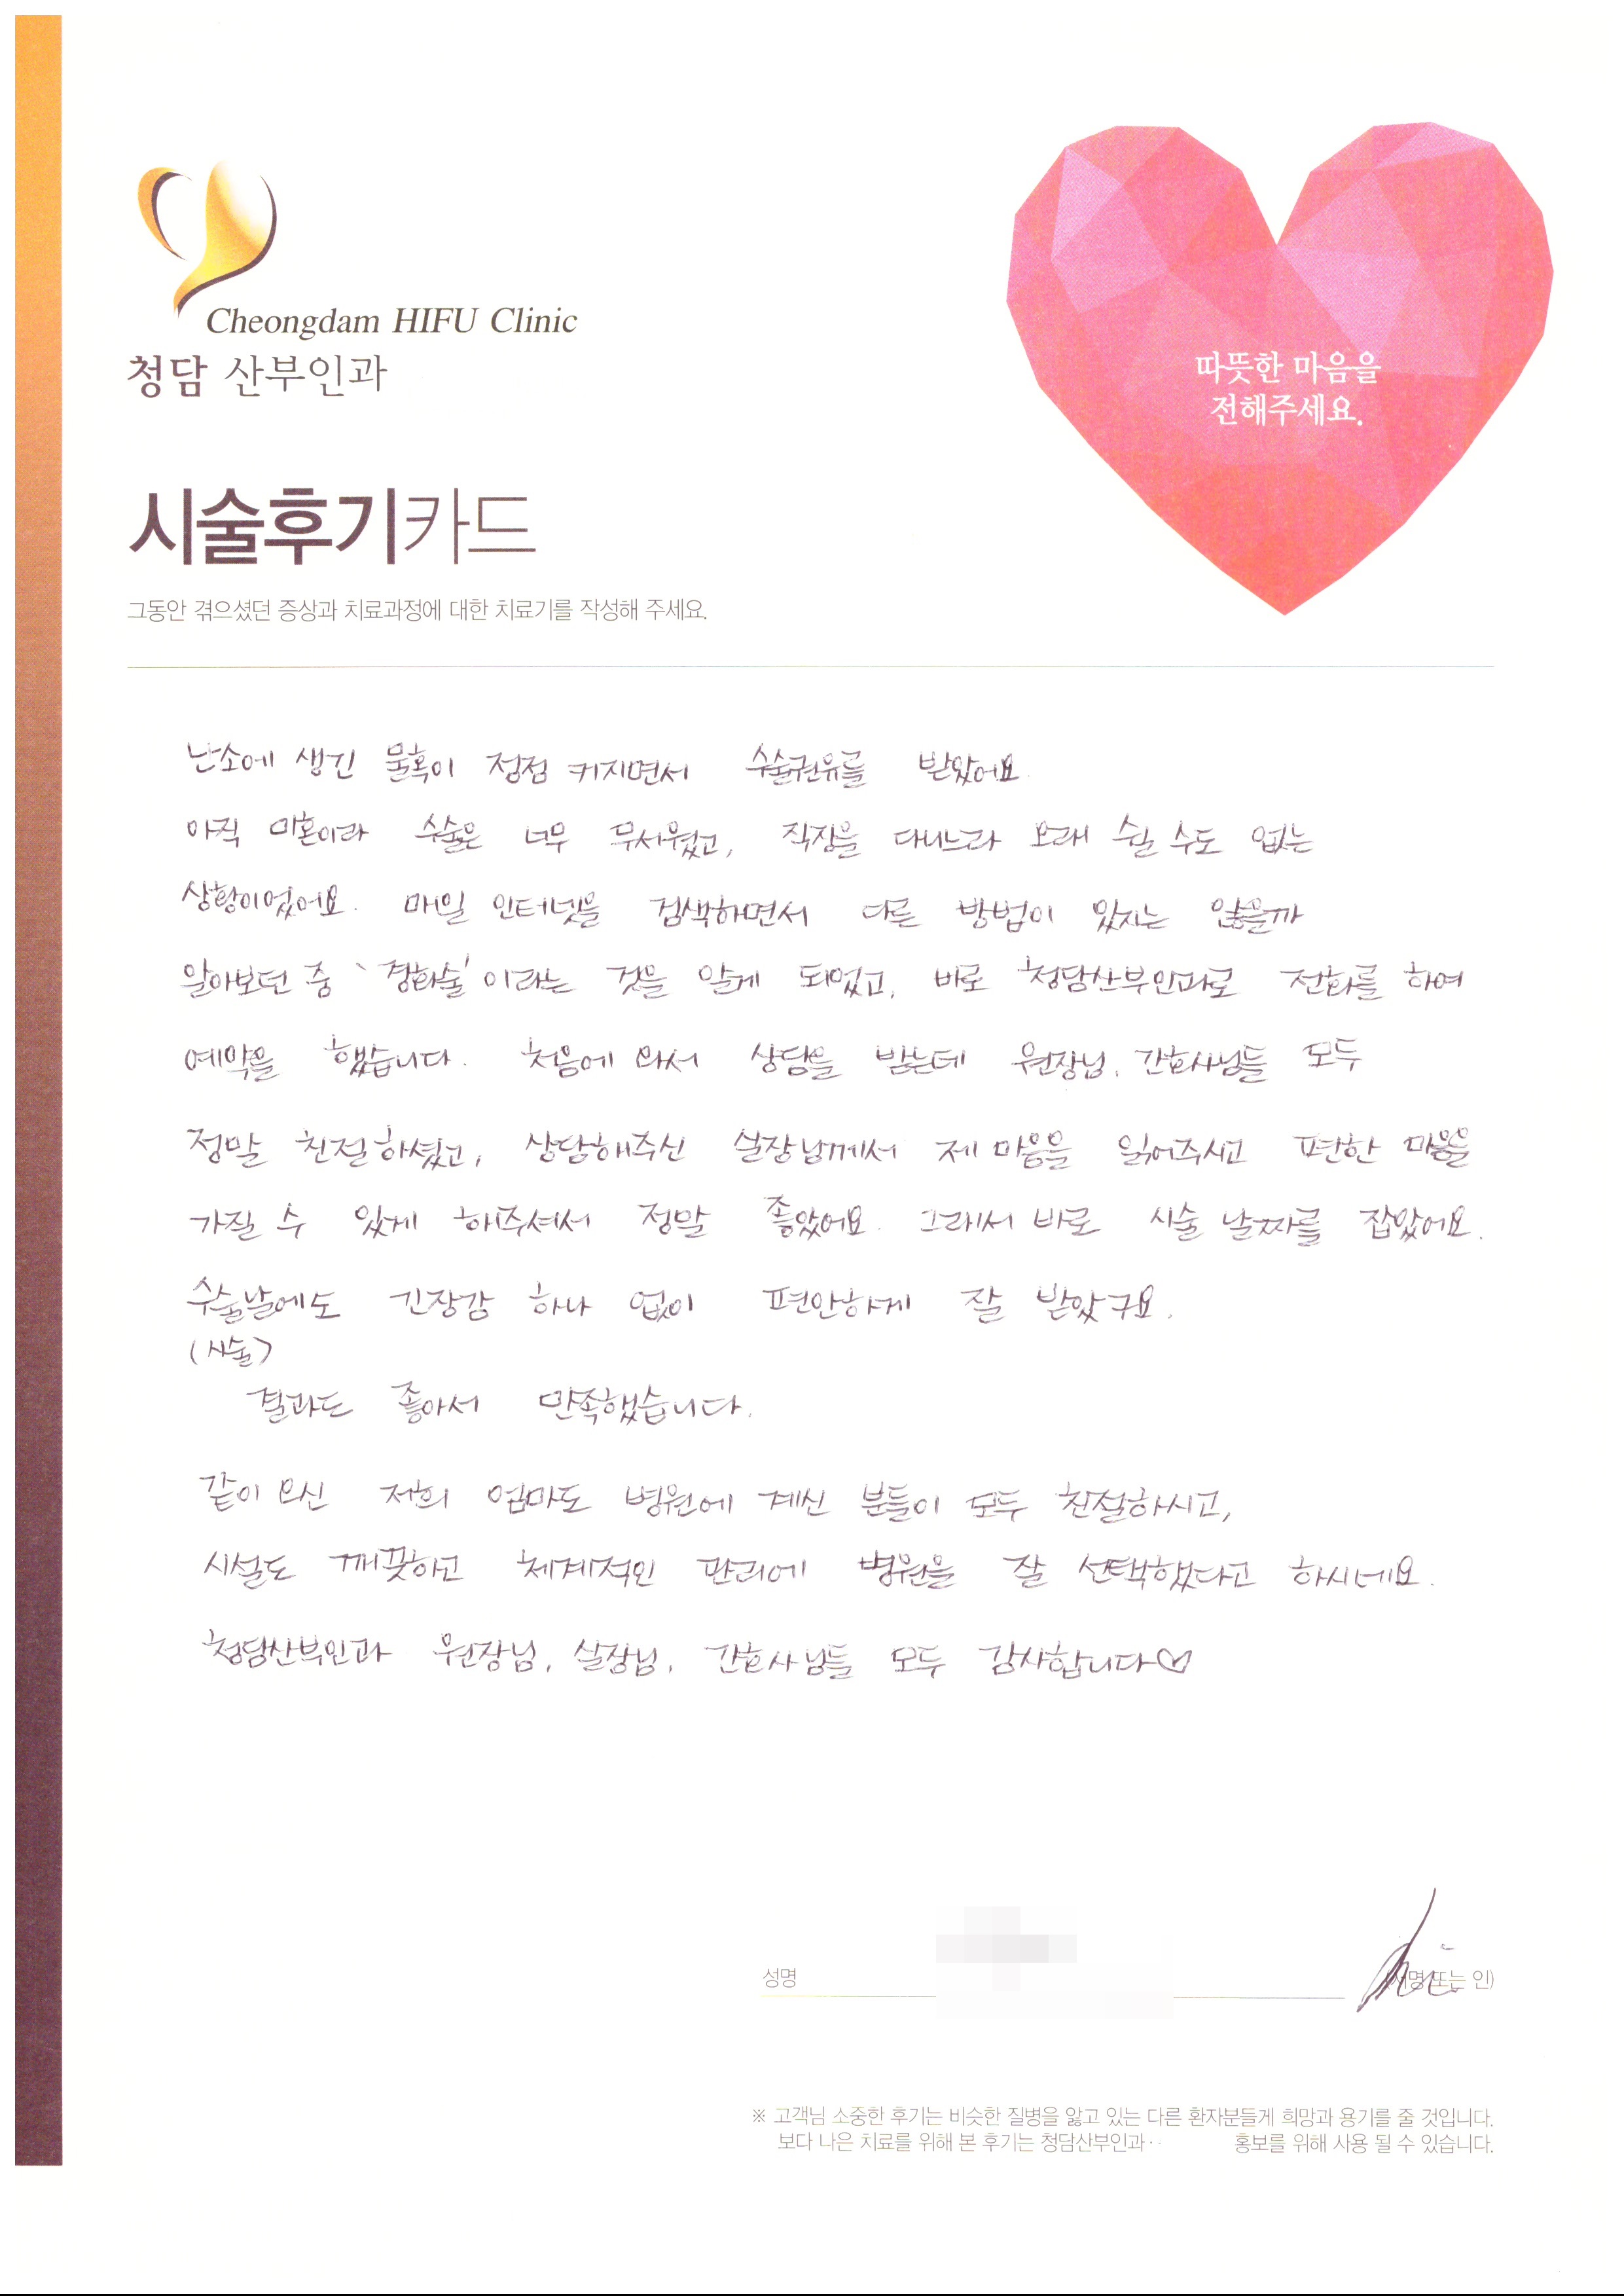 Cheongdam HIFU Clinic
청담 산부인과
따뜻한 마음을
전해주세요.
시술후기카드
그동안 겪으셨던 증상과 치료과정에 대한 치료기를 작성해 주세요.
난소에 생긴 물혹이 점점 커지면서 수술권유를 받았어요.
아직 미혼이라 수술은 너무 무서웠고, 직장을 다니느라 오래 쉴 수도 없는
상황이었어요. 매일 인터넷을 검색하면서 다른 방법이 있지는 않을까
알아보던 중 '경화술'이라는 것을 알게 되었고, 바로 청담산부인과로 전화를 하여
예약을 했습니다. 처음에 와서 상담을 받는데 원장님, 간호사님들 모두
정말 친절하셨고, 상담해주신 실장님께서 제 마음을 읽어주시고 편한 마음을
가질 수 있게 해주셔서 정말 좋았어요. 그래서 바로 시술 날짜를 잡았어요.
수술날에도 긴장감 하나 없이 편안하게 잘 받았구요.
(시술)
결과도 좋아서 만족했습니다.
같이 오신 저희 엄마도 병원에 계신 분들이 모두 친절하시고,
시설도 깨끗하고 체계적인 관리에 병원을 잘 선택했다고 하시네요.
청담산부인과 원장님, 실장님, 간호사님들 모두 감사합니다♡
성명
(서명 또는 인)
※ 고객님 소중한 후기는 비슷한 질병을 앓고 있는 다른 환자분들게 희망과 용기를 줄 것입니다.
보다 나은 치료를 위해 본 후기는 청담산부인과 홍보를 위해 사용 될 수 있습니다.